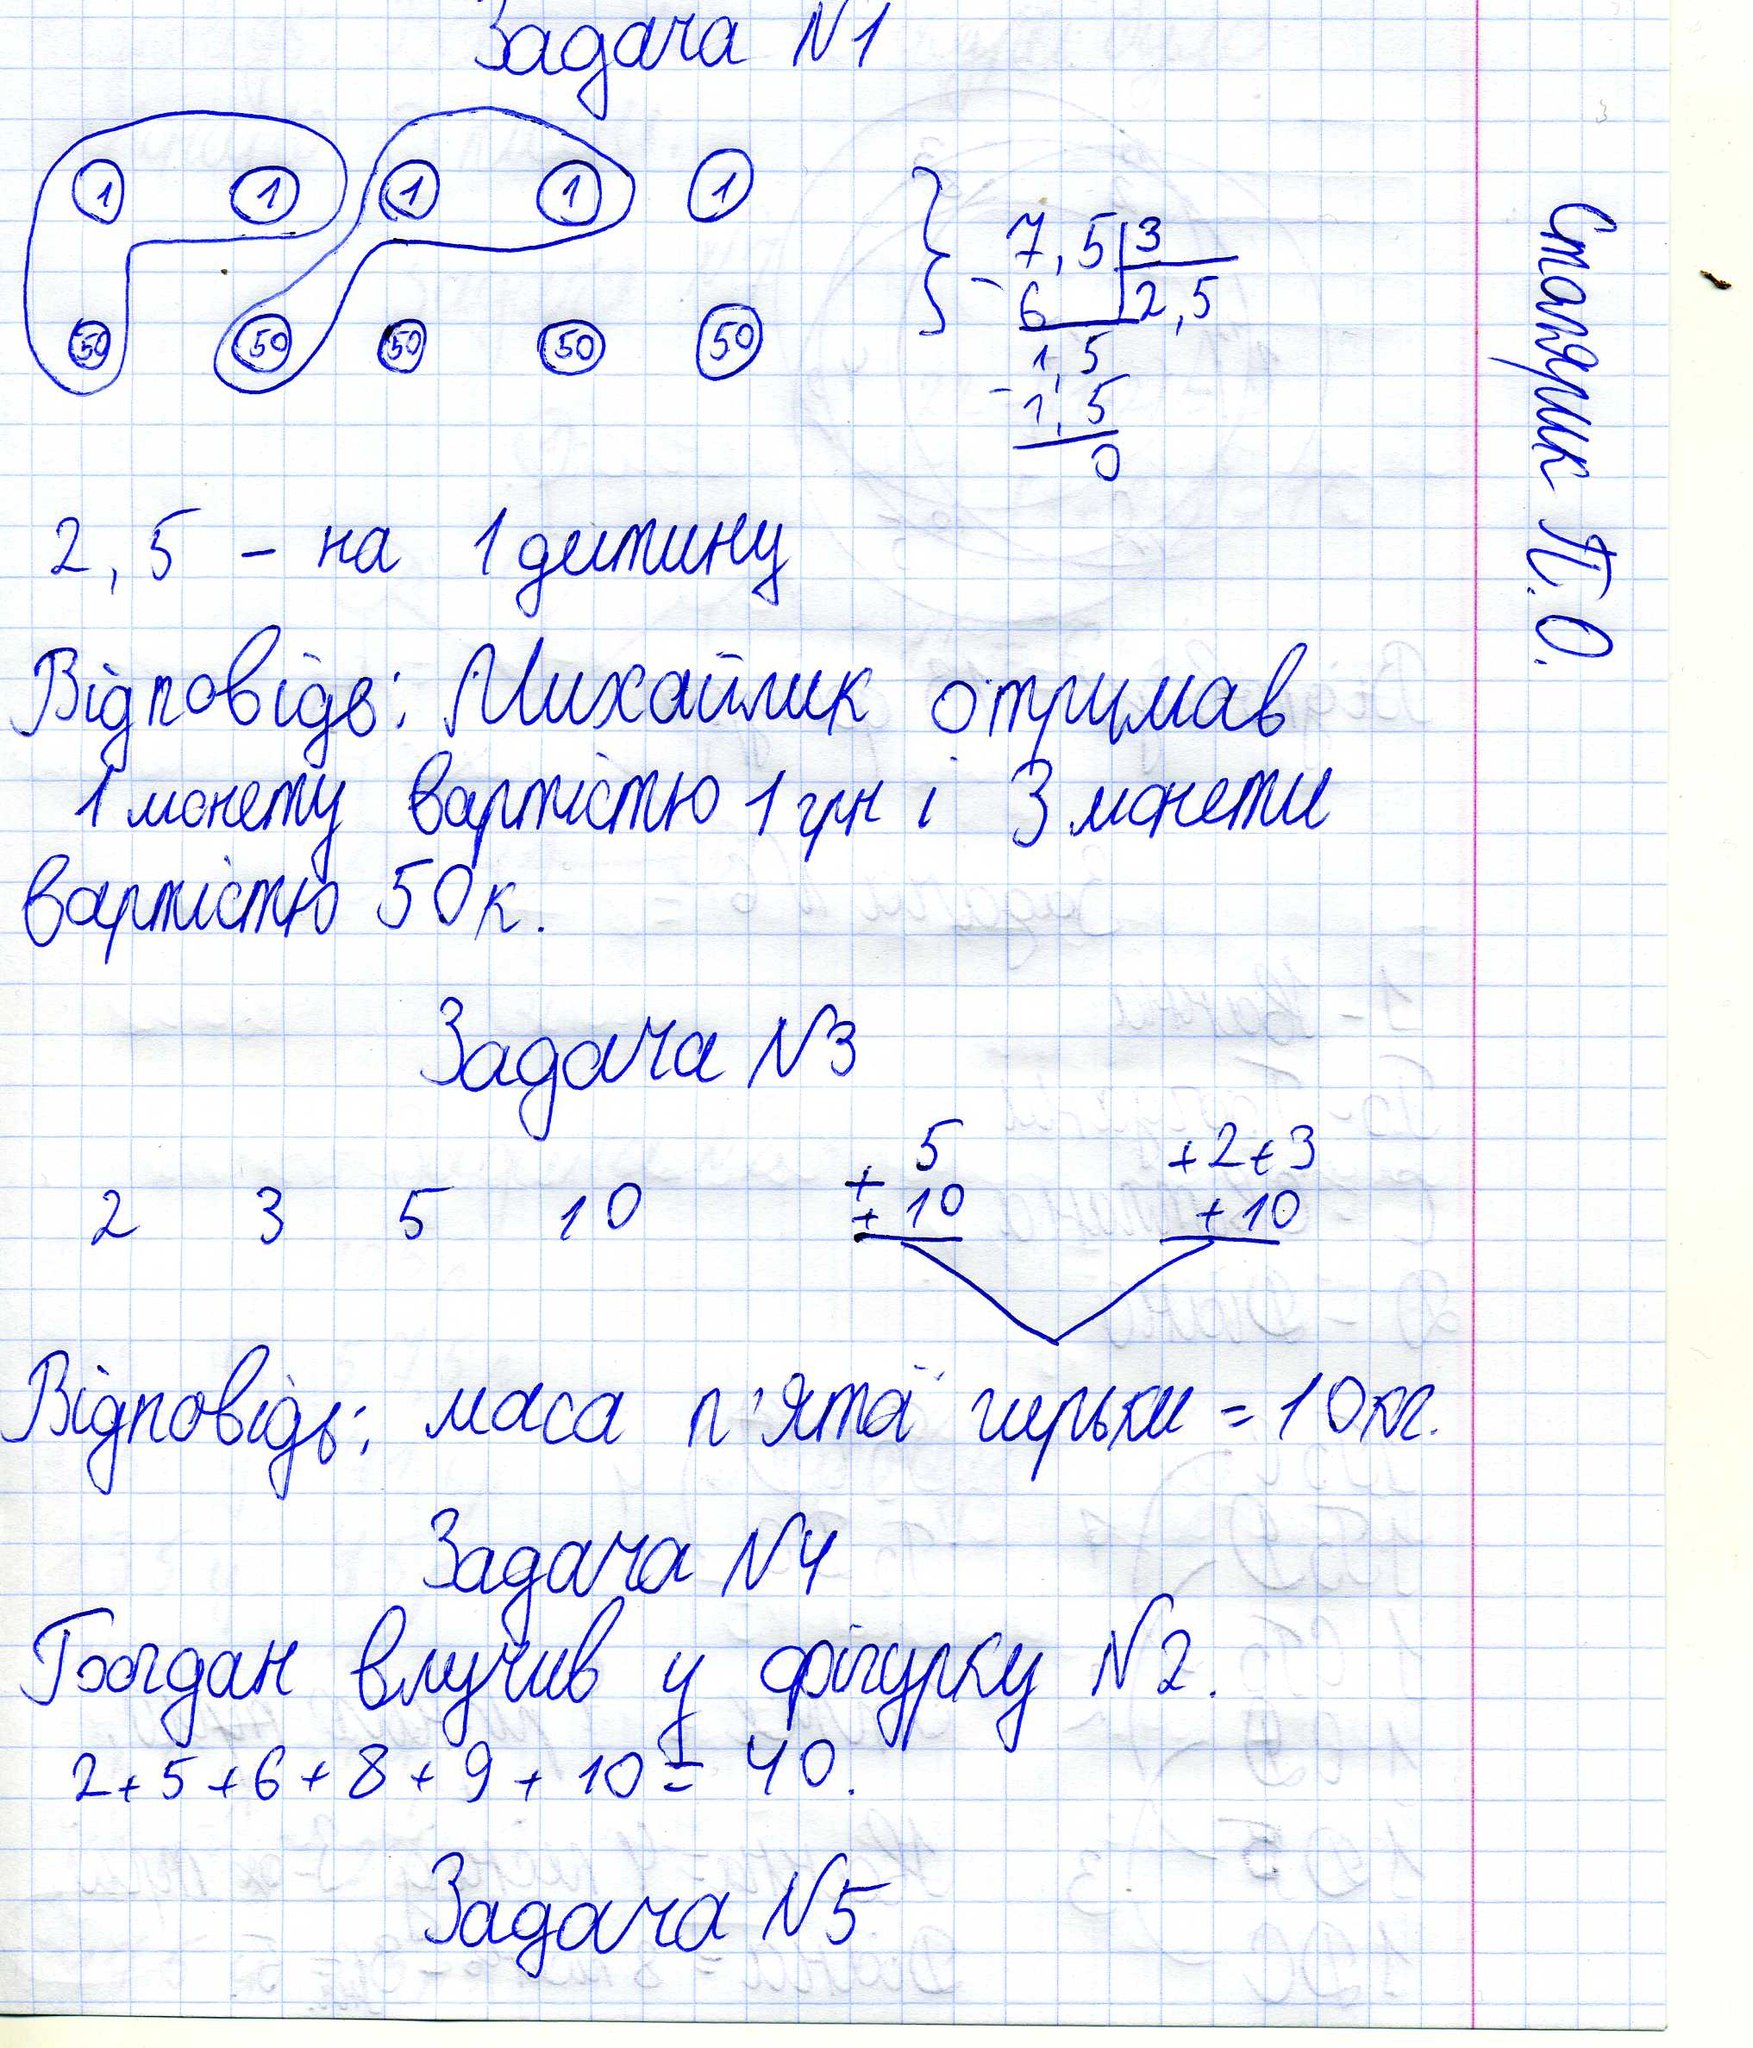 Задача N1
1 1 1 1 1
50 50 50 50 50
7,5 3
- 6 2,5
1,5
- 1,5
0
2,5 - на 1 дитину
Відповідь: Михайлик отримав
1 монету вартістю 1 грн і 3 монети
вартістю 50 к.
Задача N3
+ 5 +2+3
2 3 5 10 + 10 +10
Відповідь: маса п'ятої гирьки = 10 кг.
Задача N4
Богдан влучив у фігурку N2.
2+5+6+8+9+10=40.
Задача N5
П.О.